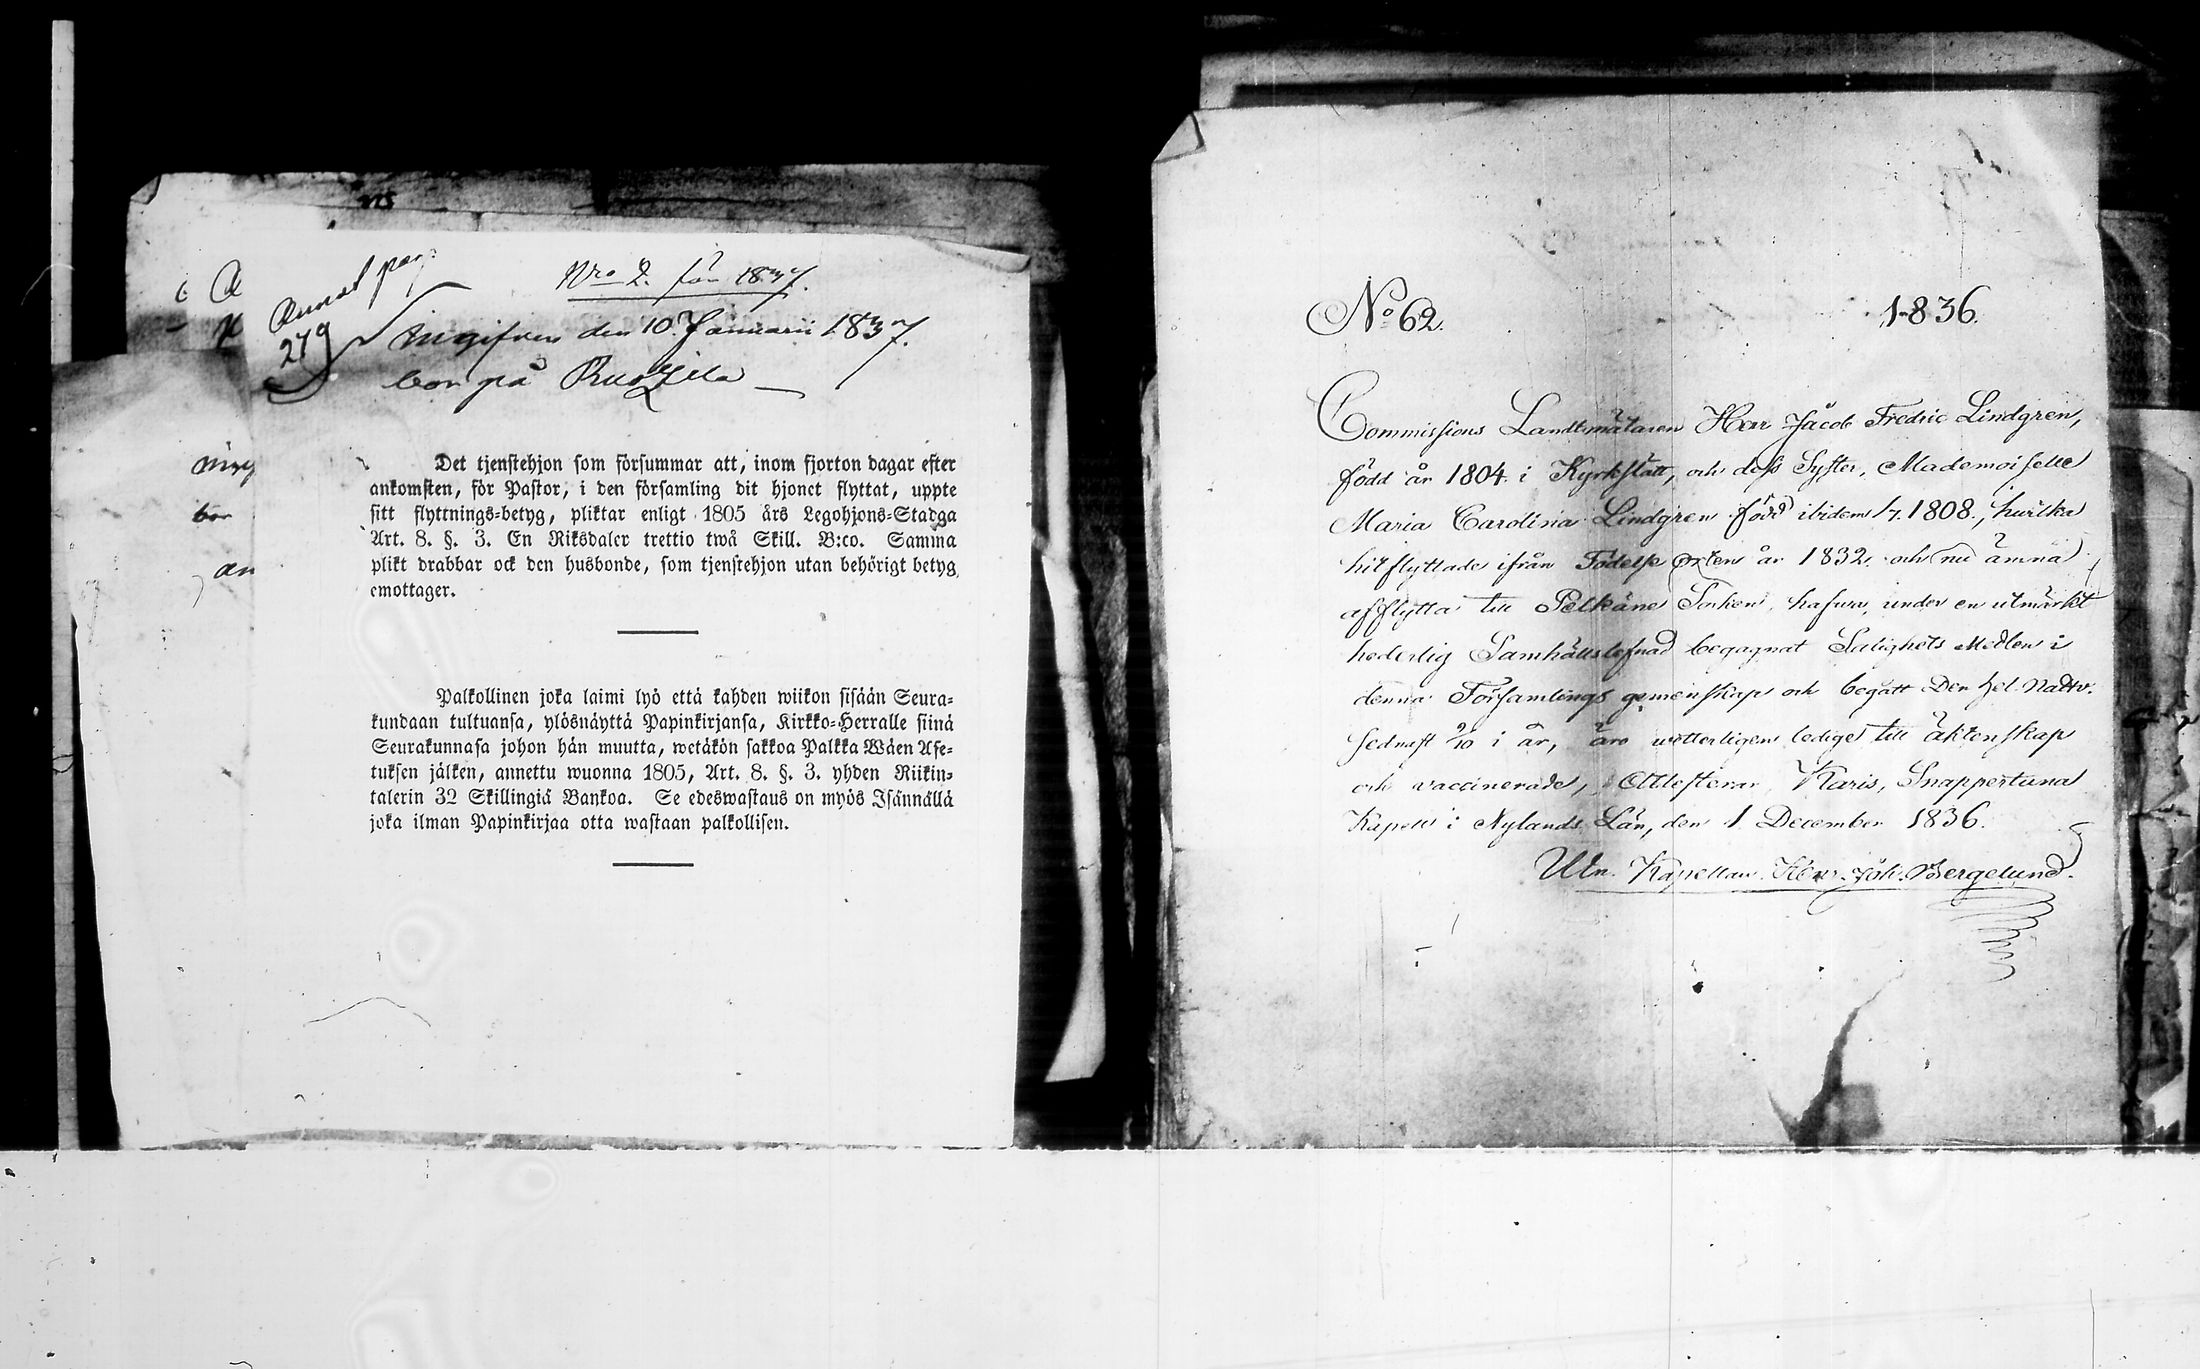 Nro 2. för 1837.
Annot pag. 279
Ingifven den 10. Januarii 1837.
bor på
Det tjenstehjon som försummar att, inom fjorton dagar efter
ankomsten, för Pastor, i den församling dit hjonet flyttat, uppte
sitt flyttnings-betyg, pliktar enligt 1805 års Legohjons-Stadga
Art. 8. §. 3. En Riksdaler trettio twå Skill. B:co. Samma
plikt drabbar ock den husbonde, som tjenstehjon utan behörigt betyg
emottager.
Palkollinen joka laimi lyö että kahden wiikon sisään Seura-
kundaan tultuansa, ylösnäyttä Papinkirjansa, Kirkko-Herralle siinä
Seurakunnasa johon hän muutta, wetäkön sakkoa Palkka Wäen Ase-
tuksen jälken, annettu wuonna 1805, Art. 8. §. 3. yhden Riikin-
talerin 32 Skillingiä Bankoa. Se edeswastaus on myös Isännällä
joka ilman Papinkirjaa otta wastaan palkollisen.
ning
bor
an
No 62. 1836.
Commissions Landtmätaren Herr Jacob Fredric Lindgren,
född år 1804 i Kyrkslätt, och dess Syster, Mademoiselle
Maria Carolina Lindgren född ibidem 1808, hvilka
hitflyttade ifrån Födelse orten år 1832 och nu ämna
afflytta till Pelkäne Socken, hafva, under en utmärkt
hederlig Samhällslefnad begagnat Salighets Medlen i
denna Församlings gemenskap och begått Den Hel. Nattv.
sednast 2/10 i år, äro vetterligen lediga till äktenskap
och vaccinerade, Attesterar, Karis, Snappertuna
Kapell i Nylands Län, den 1 December 1836.
Kapellan Joh. Bergelund.